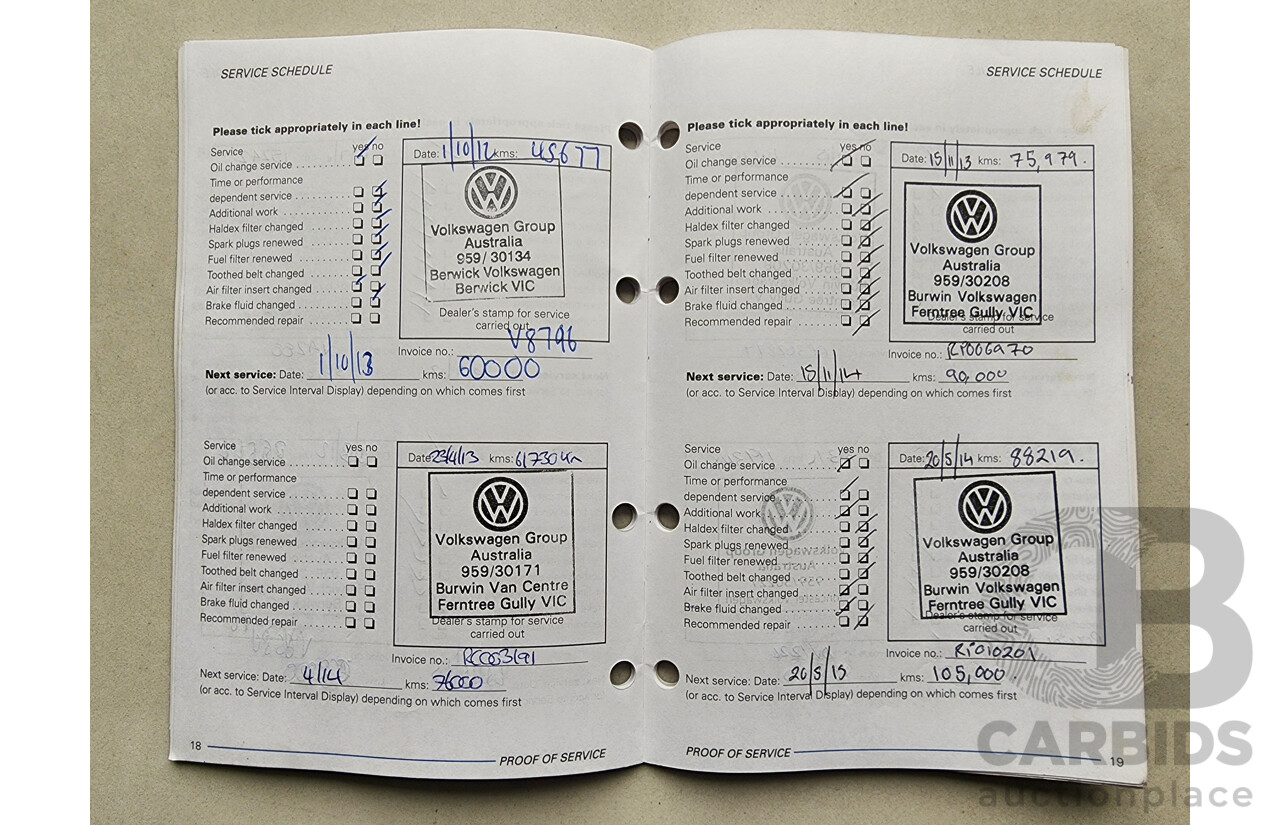 SERVICE SCHEDULE
Please tick appropriately in each line!
Service yes no
Oil change service
Time or performance
dependent service
Additional work
Haldex filter changed
Spark plugs renewed
Fuel filter renewed
Toothed belt changed
Air filter insert changed
Brake fluid changed
Recommended repair
Date: 1/10/12 kms: 45677
Volkswagen Group
Australia
959/30134
Berwick Volkswagen
Berwick VIC
Dealer's stamp for service
carried out
Invoice no.: V8796
Next service: Date: 1/10/13 kms: 60000
(or acc. to Service Interval Display) depending on which comes first
Service yes no
Oil change service
Time or performance
dependent service
Additional work
Haldex filter changed
Spark plugs renewed
Fuel filter renewed
Toothed belt changed
Air filter insert changed
Brake fluid changed
Recommended repair
Date: 23/4/13 kms: 61730km
Volkswagen Group
Australia
959/30171
Burwin Van Centre
Ferntree Gully VIC
Dealer's stamp for service
carried out
Invoice no.:
Next service: Date: 4/14 kms: 76000
(or acc. to Service Interval Display) depending on which comes first
18
PROOF OF SERVICE
SERVICE SCHEDULE
Please tick appropriately in each line!
Service yes no
Oil change service
Time or performance
dependent service
Additional work
Haldex filter changed
Spark plugs renewed
Fuel filter renewed
Toothed belt changed
Air filter insert changed
Brake fluid changed
Recommended repair
Date: 15/11/13 kms: 75,979.
Volkswagen Group
Australia
959/30208
Burwin Volkswagen
Ferntree Gully VIC
Dealer's stamp for service
carried out
Invoice no.: RI006970
Next service: Date: 15/11/14 kms: 90,000
(or acc. to Service Interval Display) depending on which comes first
Service yes no
Oil change service
Time or performance
dependent service
Additional work
Haldex filter changed
Spark plugs renewed
Fuel filter renewed
Toothed belt changed
Air filter insert changed
Brake fluid changed
Recommended repair
Date: 20/5/14 kms: 88219.
Volkswagen Group
Australia
959/30208
Burwin Volkswagen
Ferntree Gully VIC
Dealer's stamp for service
carried out
Invoice no.: RI010201
Next service: Date: 20/5/15 kms: 105,000.
(or acc. to Service Interval Display) depending on which comes first
PROOF OF SERVICE
19
CARBIDS
auctionplace